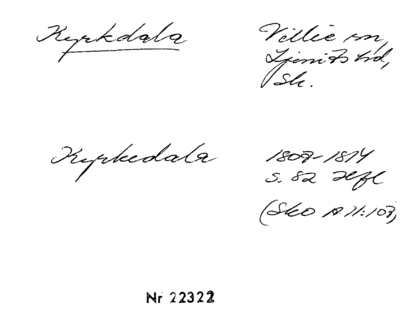 Kyrkdala
Villie sn,
Ljunits hd,
Sk.
Kyrkedala
1807-1814
s. 82 Hfl
(Sko A II:107)
Nr 22322